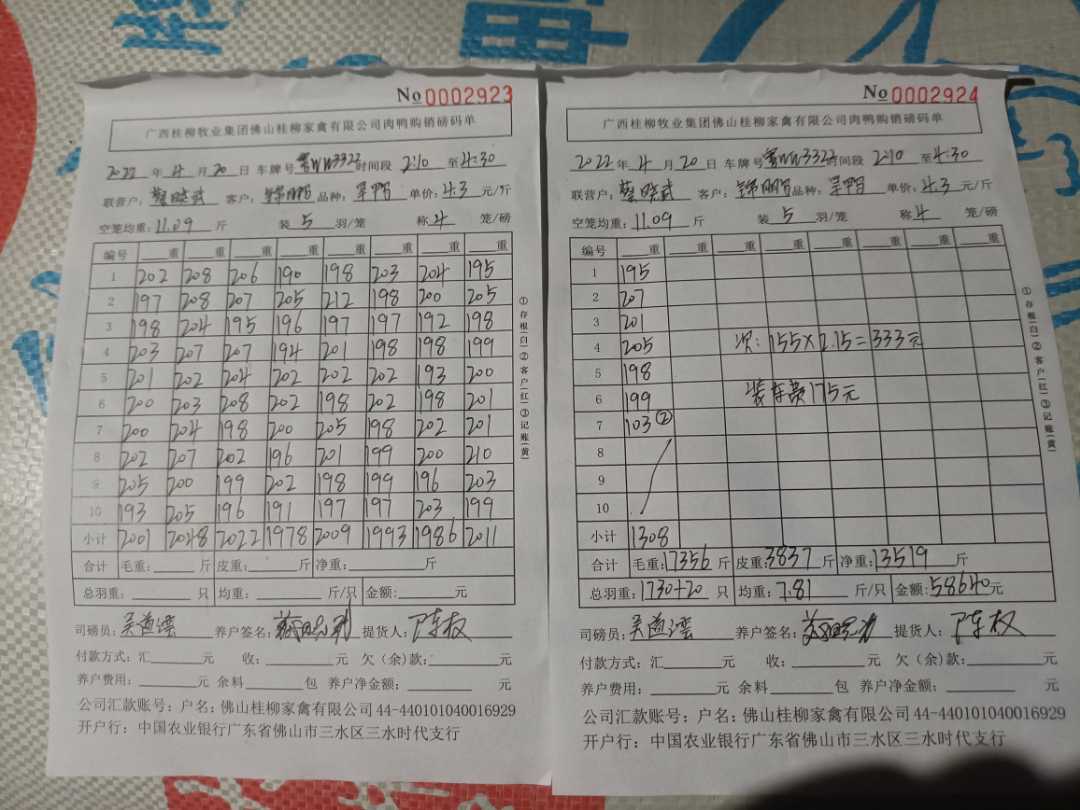 No 0002923
广西桂柳牧业集团佛山桂柳家禽有限公司肉鸭购销磅码单
2022年4月20日 车牌号粤WW3322时间段 2:10 至4:30
联营户: 客户: 锦鹏 品种: 单价: 4.3 元/斤
空笼均重: 11.09 斤 装5羽/笼 称4笼/磅
编号 重 重 重 重 重 重 重 重
1 202 208 206 190 198 203 204 195
2 197 208 207 205 212 198 200 205
3 198 204 195 196 197 197 192 198
4 203 207 207 194 201 198 198 199
5 201 202 204 202 202 202 193 200
6 200 203 208 202 198 202 198 201
7 200 204 198 200 205 198 202 201
8 202 207 202 196 201 199 200 210
9 205 200 199 202 198 199 196 203
10 193 205 196 191 197 197 203 199
小计 2001 2048 2022 1978 2009 1993 1986 2011
合计 毛重: 斤 皮重: 斤 净重: 斤
总羽重: 只 均重: 斤/只 金额: 元
司磅员: 养户签名: 提货人: 陈权
付款方式:汇 元 收: 元 欠(余)款: 元
养户费用: 元 余料 包 养户净金额: 元
公司汇款账号:户名:佛山桂柳家禽有限公司44-440101040016929
开户行:中国农业银行广东省佛山市三水区三水时代支行
①存根(白)②客户(红)③记账(黄)
No 0002924
广西桂柳牧业集团佛山桂柳家禽有限公司肉鸭购销磅码单
2022年4月20日 车牌号粤WW3322时间段 2:10 至4:30
联营户: 客户: 锦鹏 品种: 单价: 4.3 元/斤
空笼均重: 11.09 斤 装5羽/笼 称4笼/磅
编号 重 重 重 重 重 重 重 重
1 195
2 207
3 201
4 205 次: 155×2.15=333元
5 198
6 199 装车费175元
7 103②
8
9
10
小计 1308
合计 毛重: 17356 斤 皮重: 3837 斤 净重: 13519 斤
总羽重: 1730+20 只 均重: 7.81 斤/只 金额: 58640元
司磅员: 养户签名: 提货人: 陈权
付款方式:汇 元 收: 元 欠(余)款: 元
养户费用: 元 余料 包 养户净金额: 元
公司汇款账号:户名:佛山桂柳家禽有限公司44-440101040016929
开户行:中国农业银行广东省佛山市三水区三水时代支行
①存根(白)②客户(红)③记账(黄)